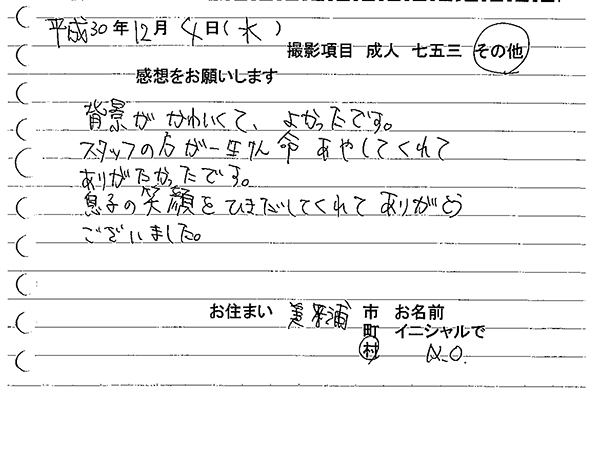 平成30年12月4日(水)
撮影項目 成人 七五三 その他
感想をお願いします
背景が かわいくて、よかったです。
スタッフの方が一生けん命 あやしてくれて
ありがたかったです。
息子の笑顔をひきだしてくれてありがとう
ございました。
お住まい 美浦 市 お名前
町 イニシャルで
村 N.O.